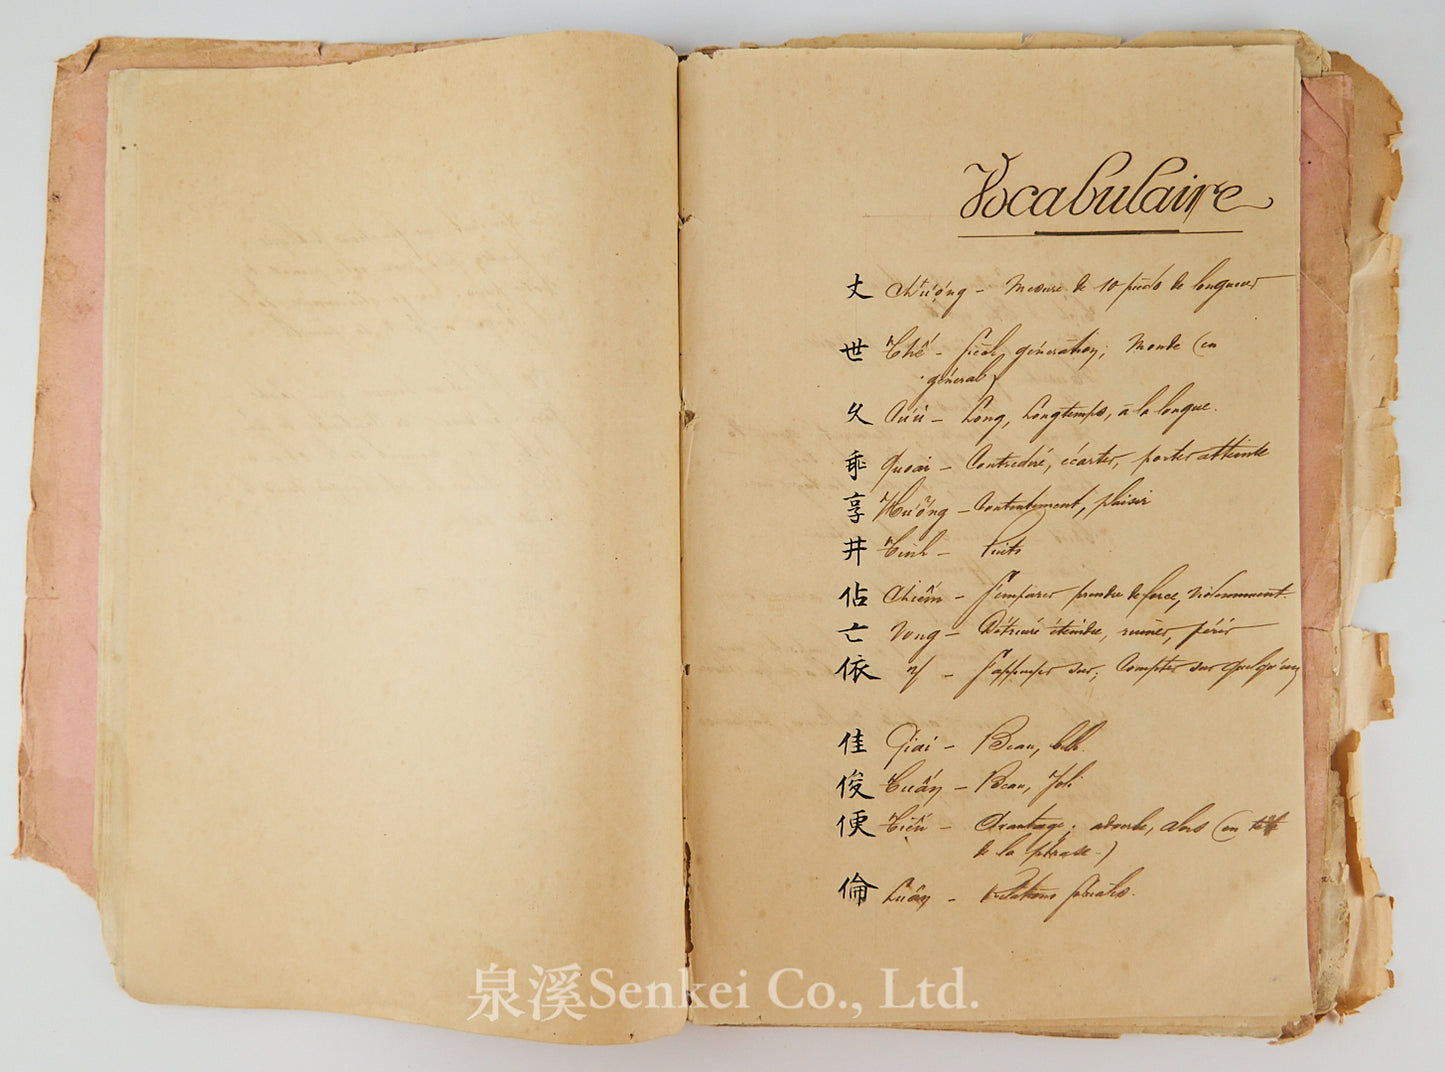 Vocabulaire
丈 Trượng - Mesure de 10 pieds de longueur
世 Thế - Siècle, génération; Monde (en
général)
久 Cửu - Long, Longtemps, à la longue.
乖 Quai - Contredire, écarter, porter atteinte
享 Hưởng - Contentement, plaisir
井 Tỉnh - Puits
佔 Chiếm - S'emparer prendre de force, violemment.
亡 Vong - éteindre, ruiner, périr
依 Y - S'appuyer sur; Compter sur quelqu'un
佳 Giai - Beau, belle.
俊 Tuấn - Beau, Joli
便 Tiện - Avantage; adverbe, alors (en tête
de la phrase.)
倫 Luân - Relations sociales.
泉溪Senkei Co., Ltd.